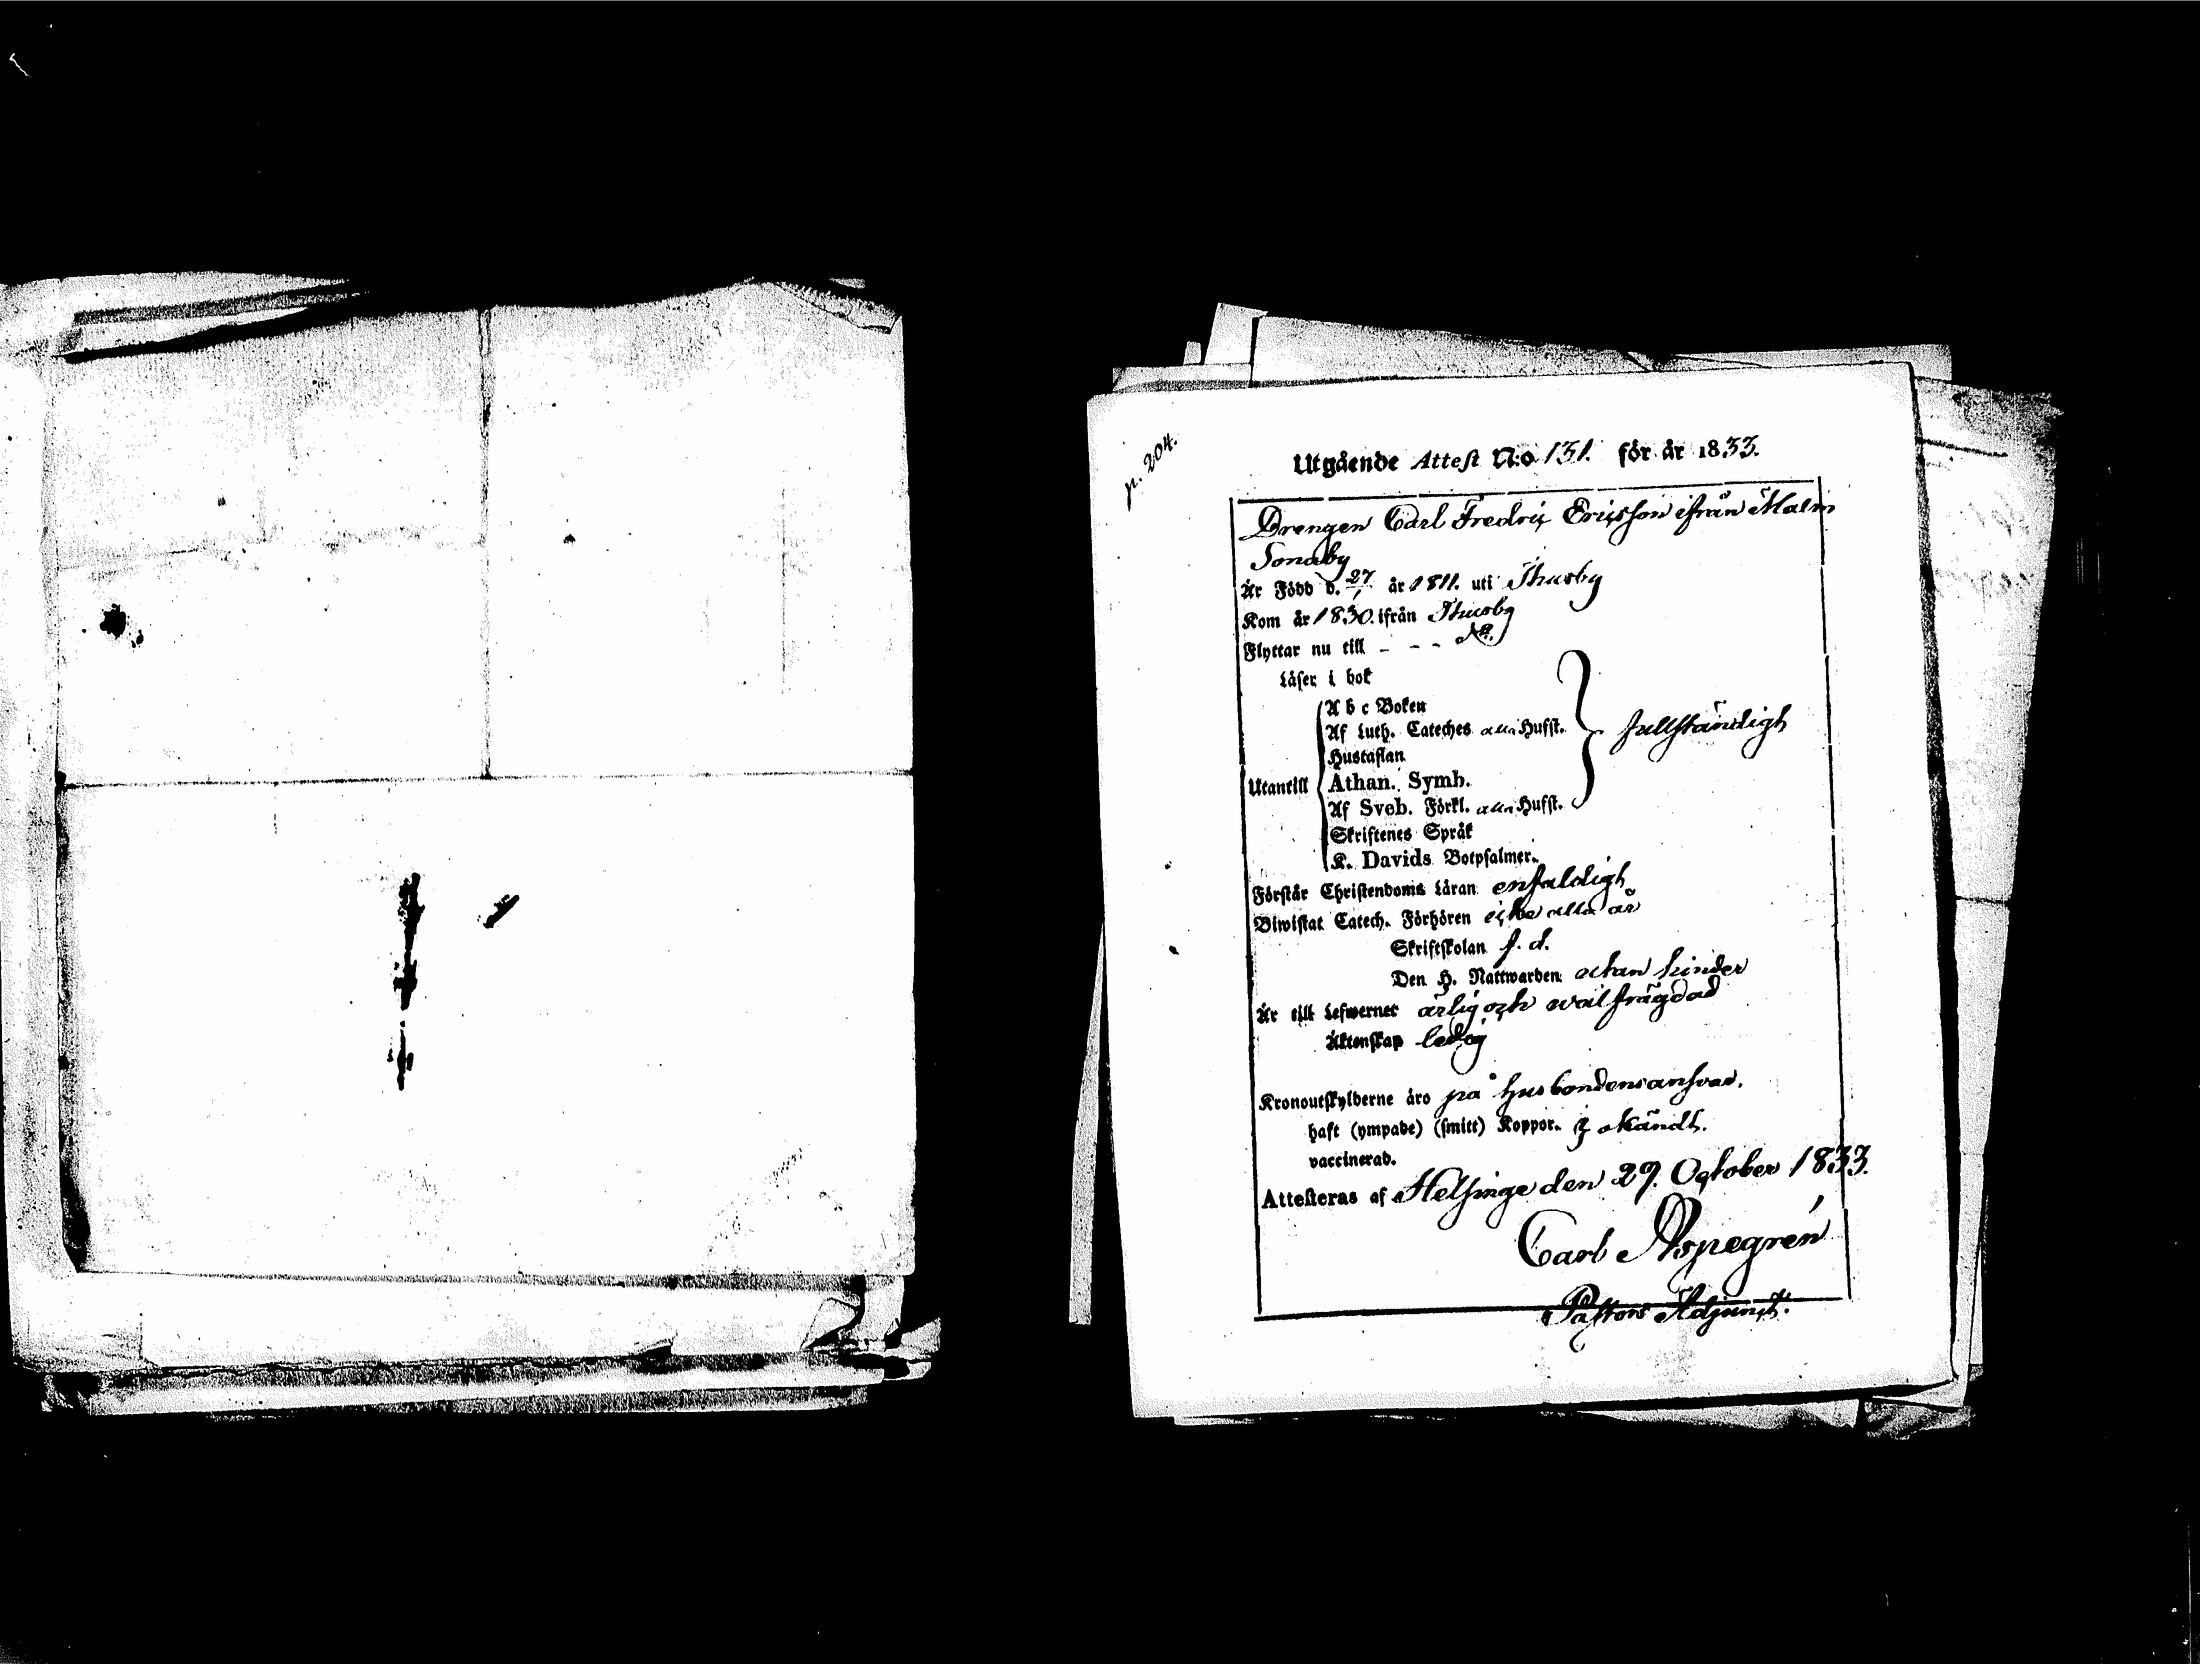 p. 204.
Utgående Attest N:o 131. för år 1833.
Drengen Carl Fredric Ericsson ifrån Malm
Är Född d. 27/1 år 1811. uti Thusby
Kom år 1830. ifrån Thusby
Flyttar nu till - - -
Läser i bok
A b c Boken
Af Luth. Cateches alla Hufst.
Hustaflan
Utantill
Athan. Symb.
Af Sveb. Förkl. alla Hufst.
Skriftenes Språk
K. Davids Botpsalmer.
fullständigt
Förstår Christendoms Läran enfaldigt
Biwistat Catech. Förhören icke alla år
Skriftskolan f. d.
Den H. Nattwarden utan hinder
Är till Lefwernet ärlig och wälfrägdad
Äktenskap ledig
Kronoutskylderne äro på husbondens ansvar.
haft (ympade) (smitt) Koppor. okändt.
vaccinerad.
Attesteras af Helsinge den 29. October 1833.
Carl Aspegrén
Pastors Adjunct.